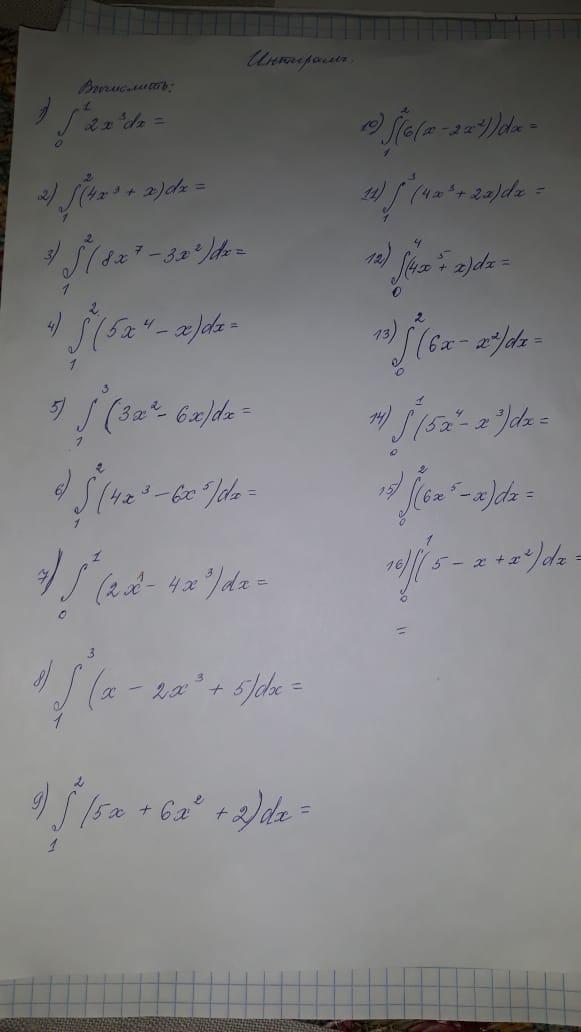 Интегралы.
Вычислить:
1) ∫₀¹ 2x³dx =
2) ∫₁² (4x³ + x)dx =
3) ∫₁² (8x⁷ - 3x²)dx =
4) ∫₁² (5x⁴ - x)dx =
5) ∫₁³ (3x² - 6x)dx =
6) ∫₁² (4x³ - 6x⁵)dx =
7) ∫₀¹ (2x¹ - 4x³)dx =
8) ∫₁³ (x - 2x³ + 5)dx =
9) ∫₁² (5x + 6x² + 2)dx =
10) ∫₁² (6(x - 2x²))dx =
11) ∫₁³ (4x³ + 2x)dx =
12) ∫₀⁴ (4x⁵ + x)dx =
13) ∫₀² (6x - x²)dx =
14) ∫₀¹ (5x⁴ - x³)dx =
15) ∫₀² (6x⁵ - x)dx =
16) ∫₀¹ (5 - x + x²)dx =
=